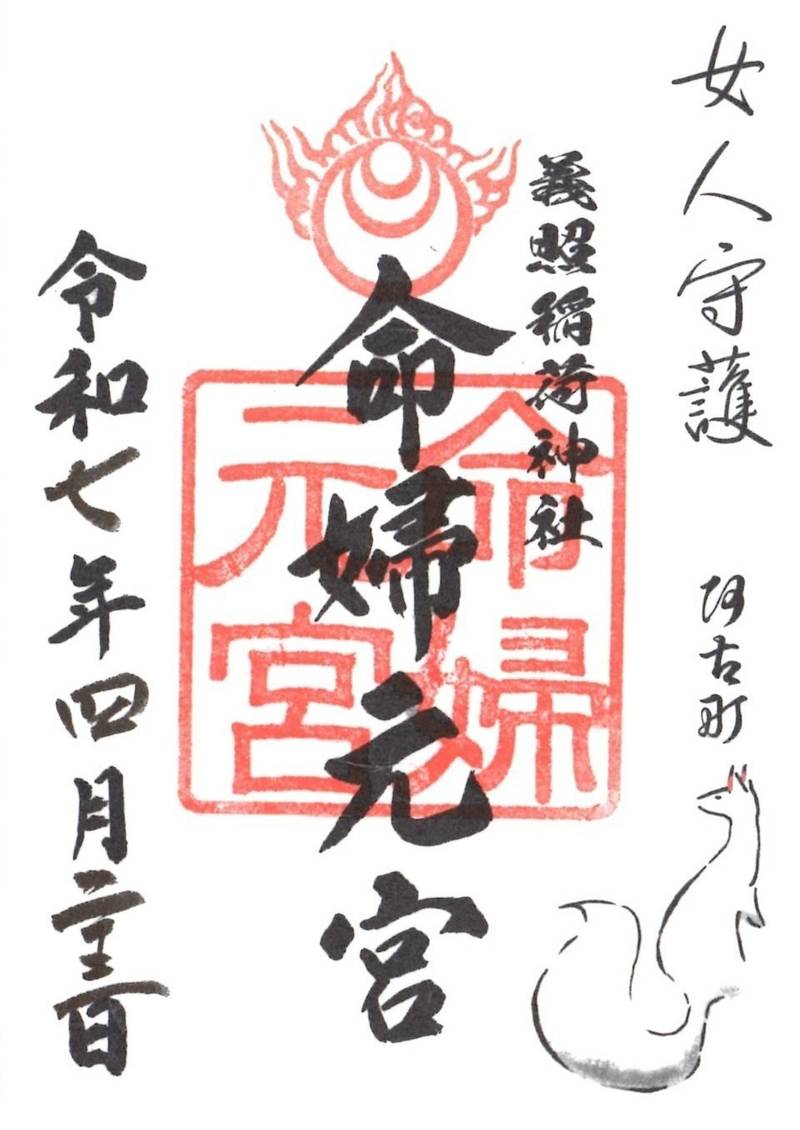 女人守護
阿古町
義照稲荷神社
命婦元宮
命婦元宮
令和七年四月二十三日